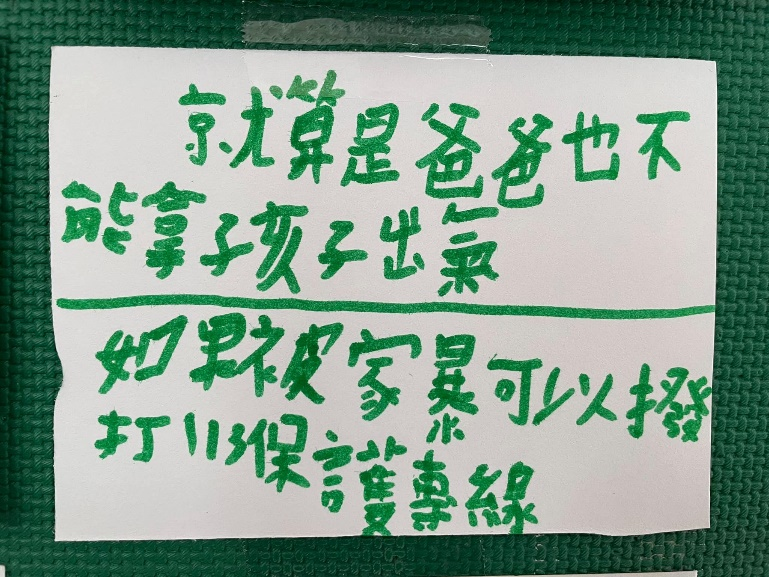 就算是爸爸也不
能拿孩子出氣
如果被家暴可以撥
打113保護專線